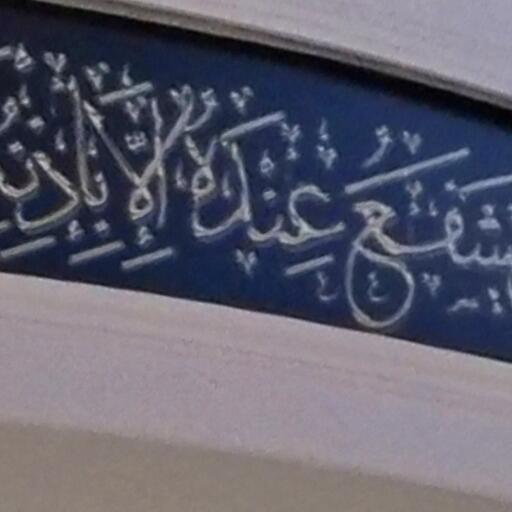 يَشْفَعُ عِنْدَهُ إِلَّا بِإِذْنِهِ